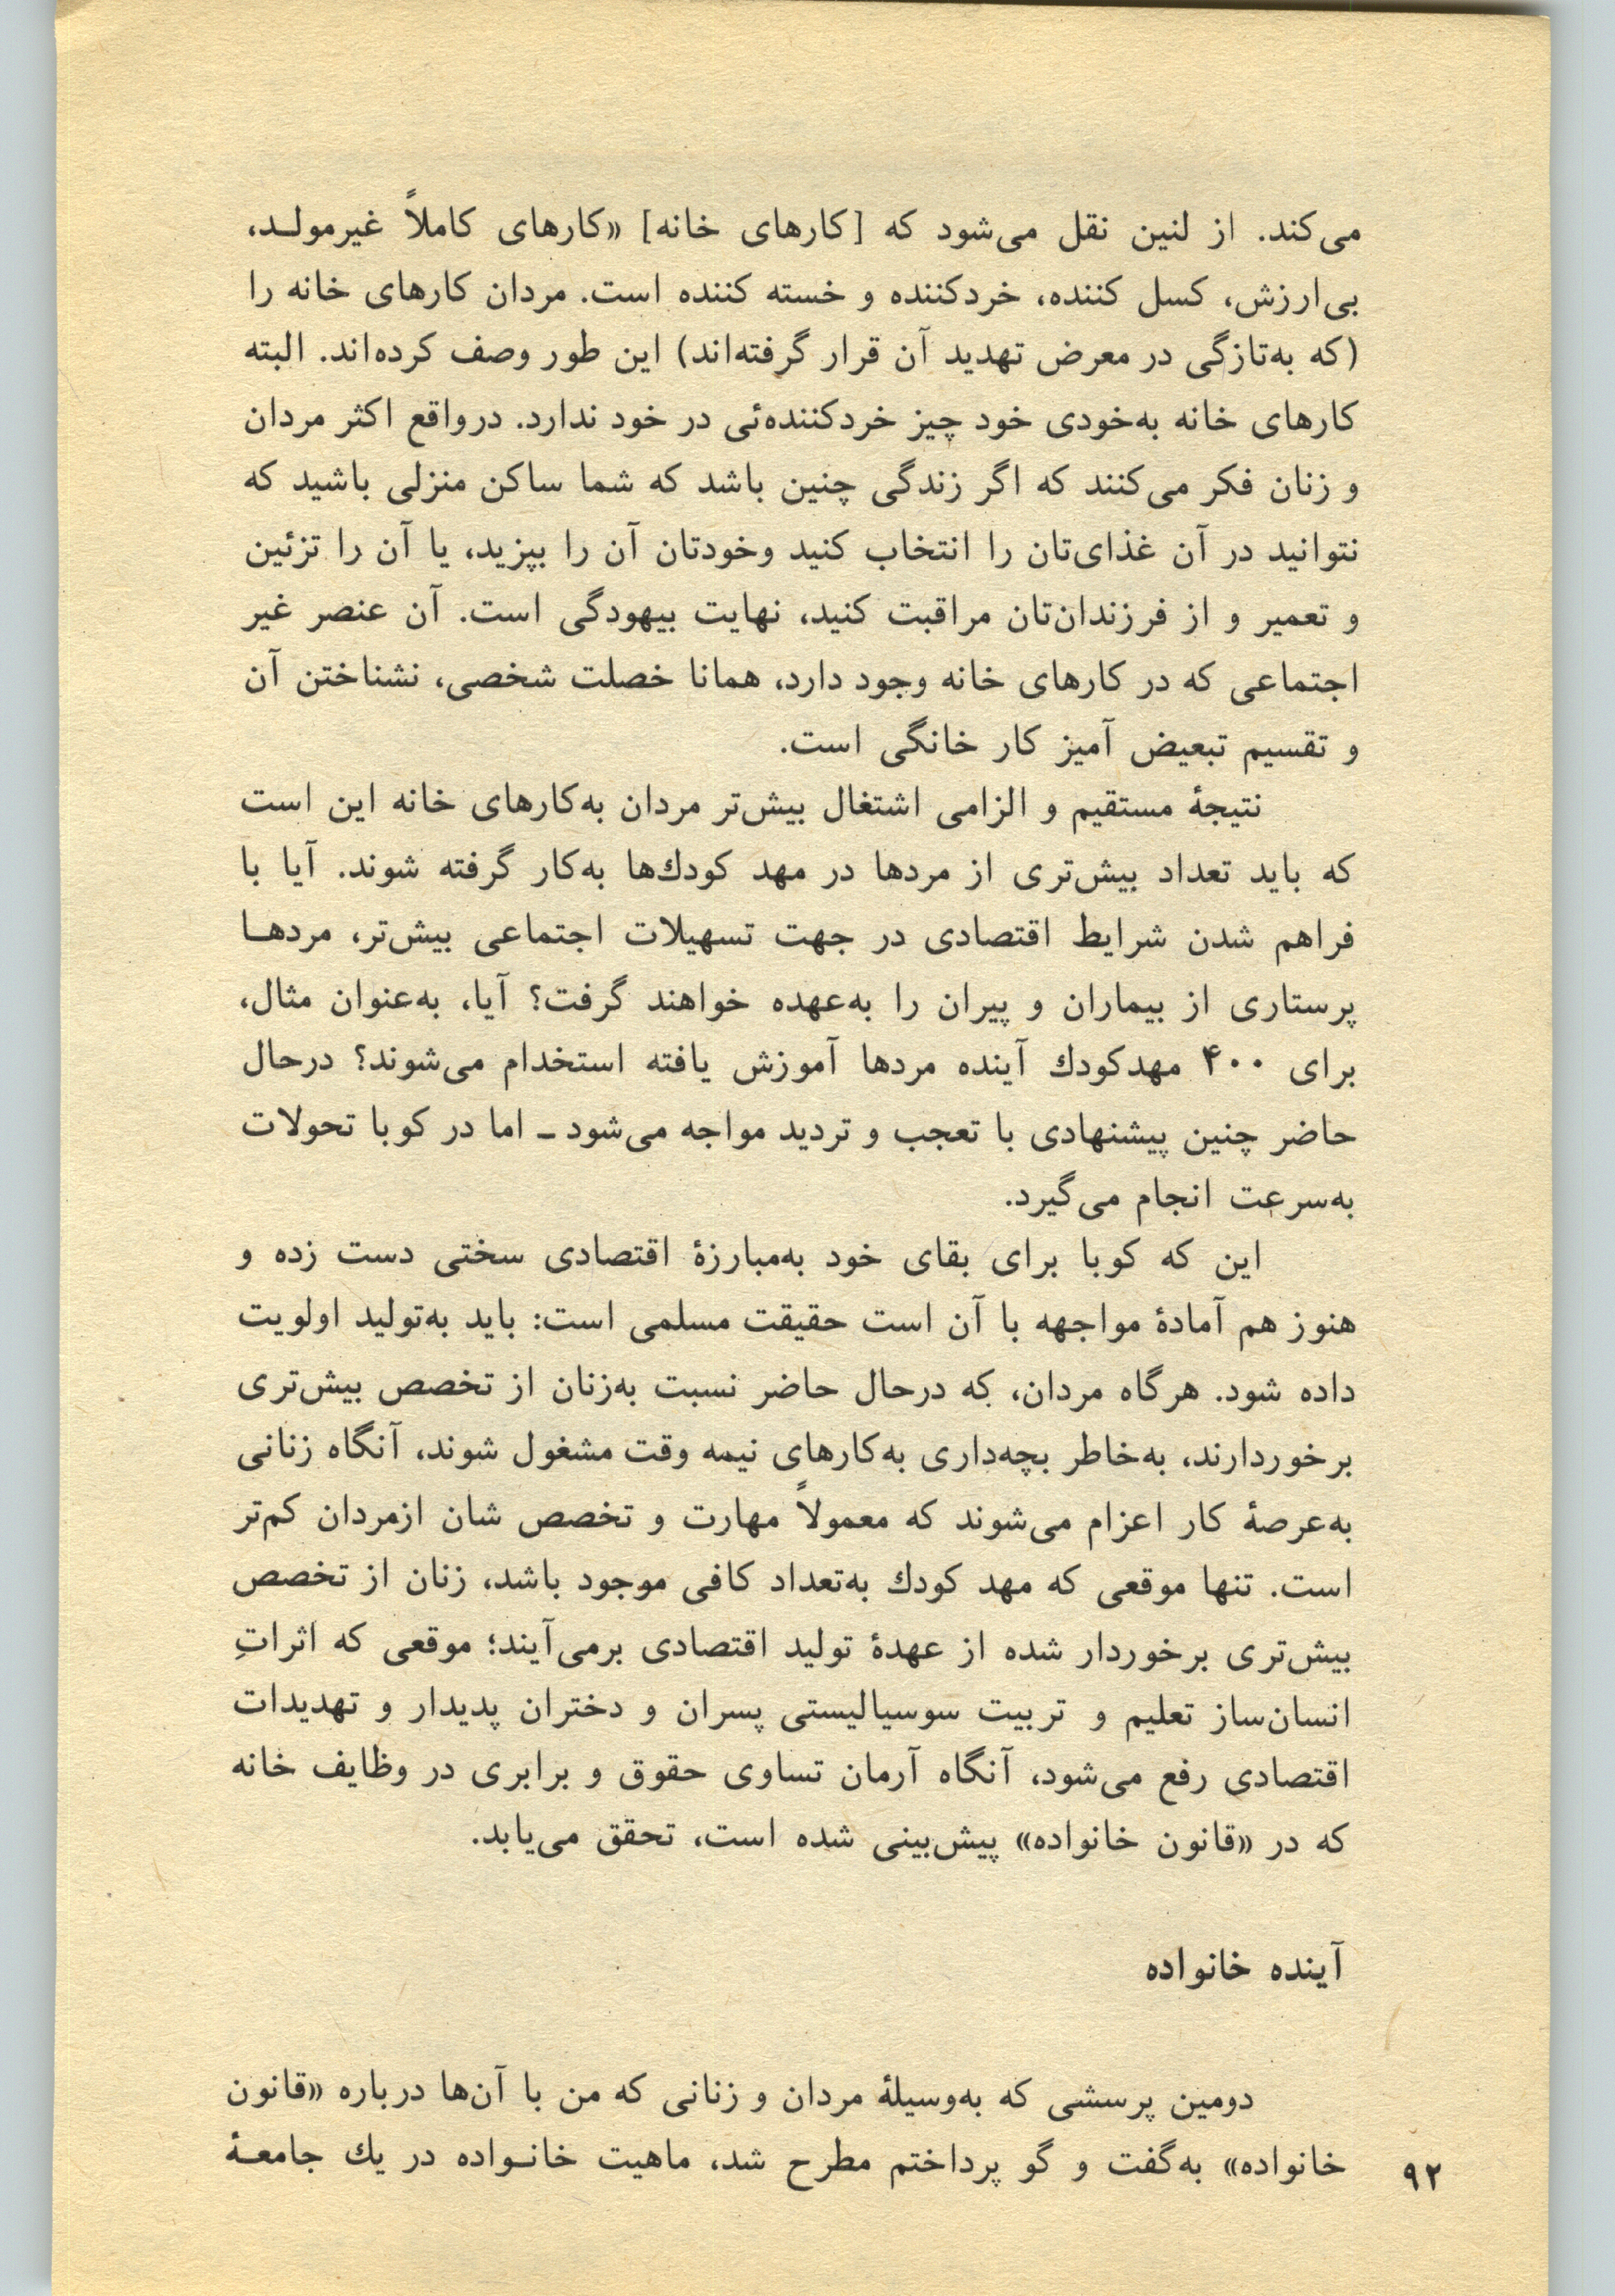 می‌کند. از لنین نقل می‌شود که [کارهای خانه] «کارهای کاملاً غیرمولـد،
بی‌ارزش، کسل کننده، خردکننده و خسته کننده است. مردان کارهای خانه را
(که به‌تازگی در معرض تهدید آن قرار گرفته‌اند) این طور وصف کرده‌اند. البته
کارهای خانه به‌خودی خود چیز خردکننده‌ئی در خود ندارد. درواقع اکثر مردان
و زنان فکر می‌کنند که اگر زندگی چنین باشد که شما ساکن منزلی باشید که
نتوانید در آن غذای‌تان را انتخاب کنید وخودتان آن را بپزید، یا آن را تزئین
و تعمیر و از فرزندان‌تان مراقبت کنید، نهایت بیهودگی است. آن عنصر غیر
اجتماعی که در کارهای خانه وجود دارد، همانا خصلت شخصی، نشناختن آن
و تقسیم تبعیض آمیز کار خانگی است.
نتیجهٔ مستقیم و الزامی اشتغال بیش‌تر مردان به‌کارهای خانه این است
که باید تعداد بیش‌تری از مردها در مهد کودك‌ها به‌کار گرفته شوند. آیا با
فراهم شدن شرایط اقتصادی در جهت تسهیلات اجتماعی بیش‌تر، مردهـا
پرستاری از بیماران و پیران را به‌عهده خواهند گرفت؟ آیا، به‌عنوان مثال،
برای ۴۰۰ مهدکودك آینده مردها آموزش یافته استخدام می‌شوند؟ درحال
حاضر چنین پیشنهادی با تعجب و تردید مواجه می‌شود ـ اما در کوبا تحولات
به‌سرعت انجام می‌گیرد.
این که کوبا برای بقای خود به‌مبارزهٔ اقتصادی سختی دست زده و
هنوز هم آمادهٔ مواجهه با آن است حقیقت مسلمی است: باید به‌تولید اولویت
داده شود. هرگاه مردان، که درحال حاضر نسبت به‌زنان از تخصص بیش‌تری
برخوردارند، به‌خاطر بچه‌داری به‌کارهای نیمه وقت مشغول شوند، آنگاه زنانی
به‌عرصهٔ کار اعزام می‌شوند که معمولاً مهارت و تخصص شان ازمردان کم‌تر
است. تنها موقعی که مهد کودك به‌تعداد کافی موجود باشد، زنان از تخصص
بیش‌تری برخوردار شده از عهدهٔ تولید اقتصادی برمی‌آیند؛ موقعی که اثراتِ
انسان‌ساز تعلیم و تربیت سوسیالیستی پسران و دختران پدیدار و تهدیدات
اقتصادی رفع می‌شود، آنگاه آرمان تساوی حقوق و برابری در وظایف خانه
که در «قانون خانواده» پیش‌بینی شده است، تحقق می‌یابد.
آینده خانواده
دومین پرسشی که به‌وسیلهٔ مردان و زنانی که من با آن‌ها درباره «قانون
خانواده» به‌گفت و گو پرداختم مطرح شد، ماهیت خانـواده در یك جامعـهٔ
۹۲